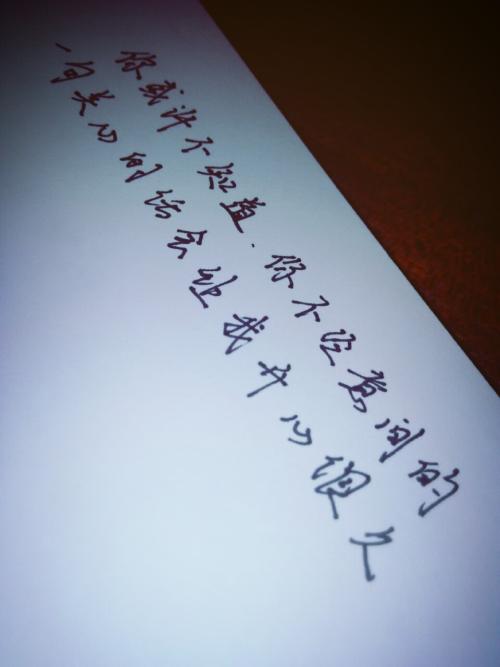 你或许不知道.你不经意间的
一句关心的话会让我开心很久